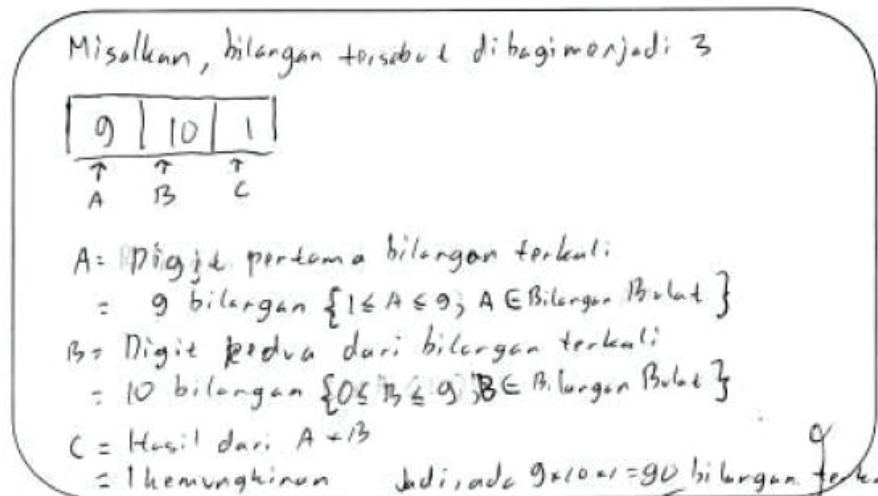 Misalkan, bilangan tersebut dibagi menjadi 3
9 10 1
↑ ↑ ↑
A B C
A = Digit pertama bilangan terkali
= 9 bilangan {1 ≤ A ≤ 9; A ∈ Bilangan Bulat}
B = Digit kedua dari bilangan terkali
= 10 bilangan {0 ≤ B ≤ 9; B ∈ Bilangan Bulat}
C = Hasil dari A × B
= 1 kemungkinan Jadi, ada 9×10×1 = 90 bilangan